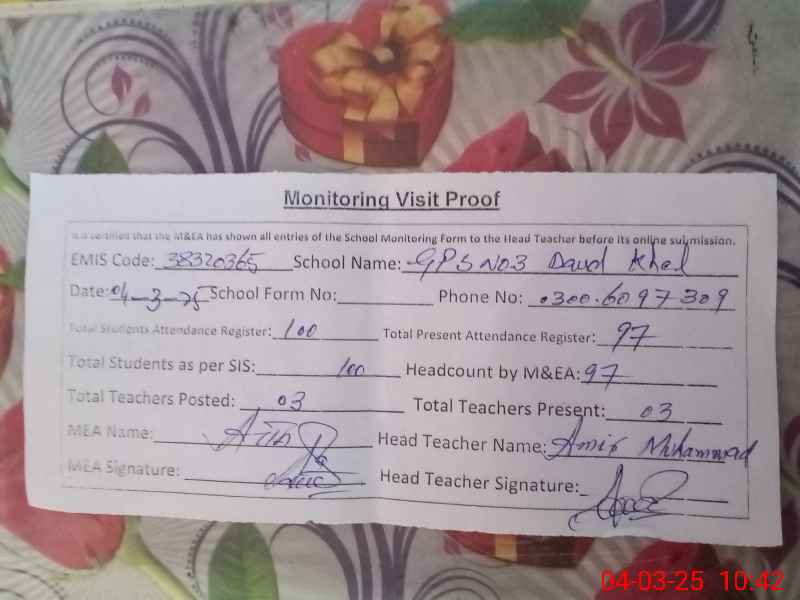 Monitoring Visit Proof
It is certified that the M&EA has shown all entries of the School Monitoring Form to the Head Teacher before its online submission.
EMIS Code: 38320365 School Name: GPS No.3 Daud Khel
Date: 04-3-25 School Form No: Phone No: 0300.6097309
Total Students Attendance Register: 100 Total Present Attendance Register: 97
Total Students as per SIS: 100 Headcount by M&EA: 97
Total Teachers Posted: 03 Total Teachers Present: 03
MEA Name: Head Teacher Name: Amir Muhammad
MEA Signature: Head Teacher Signature:
04-03-25 10:42